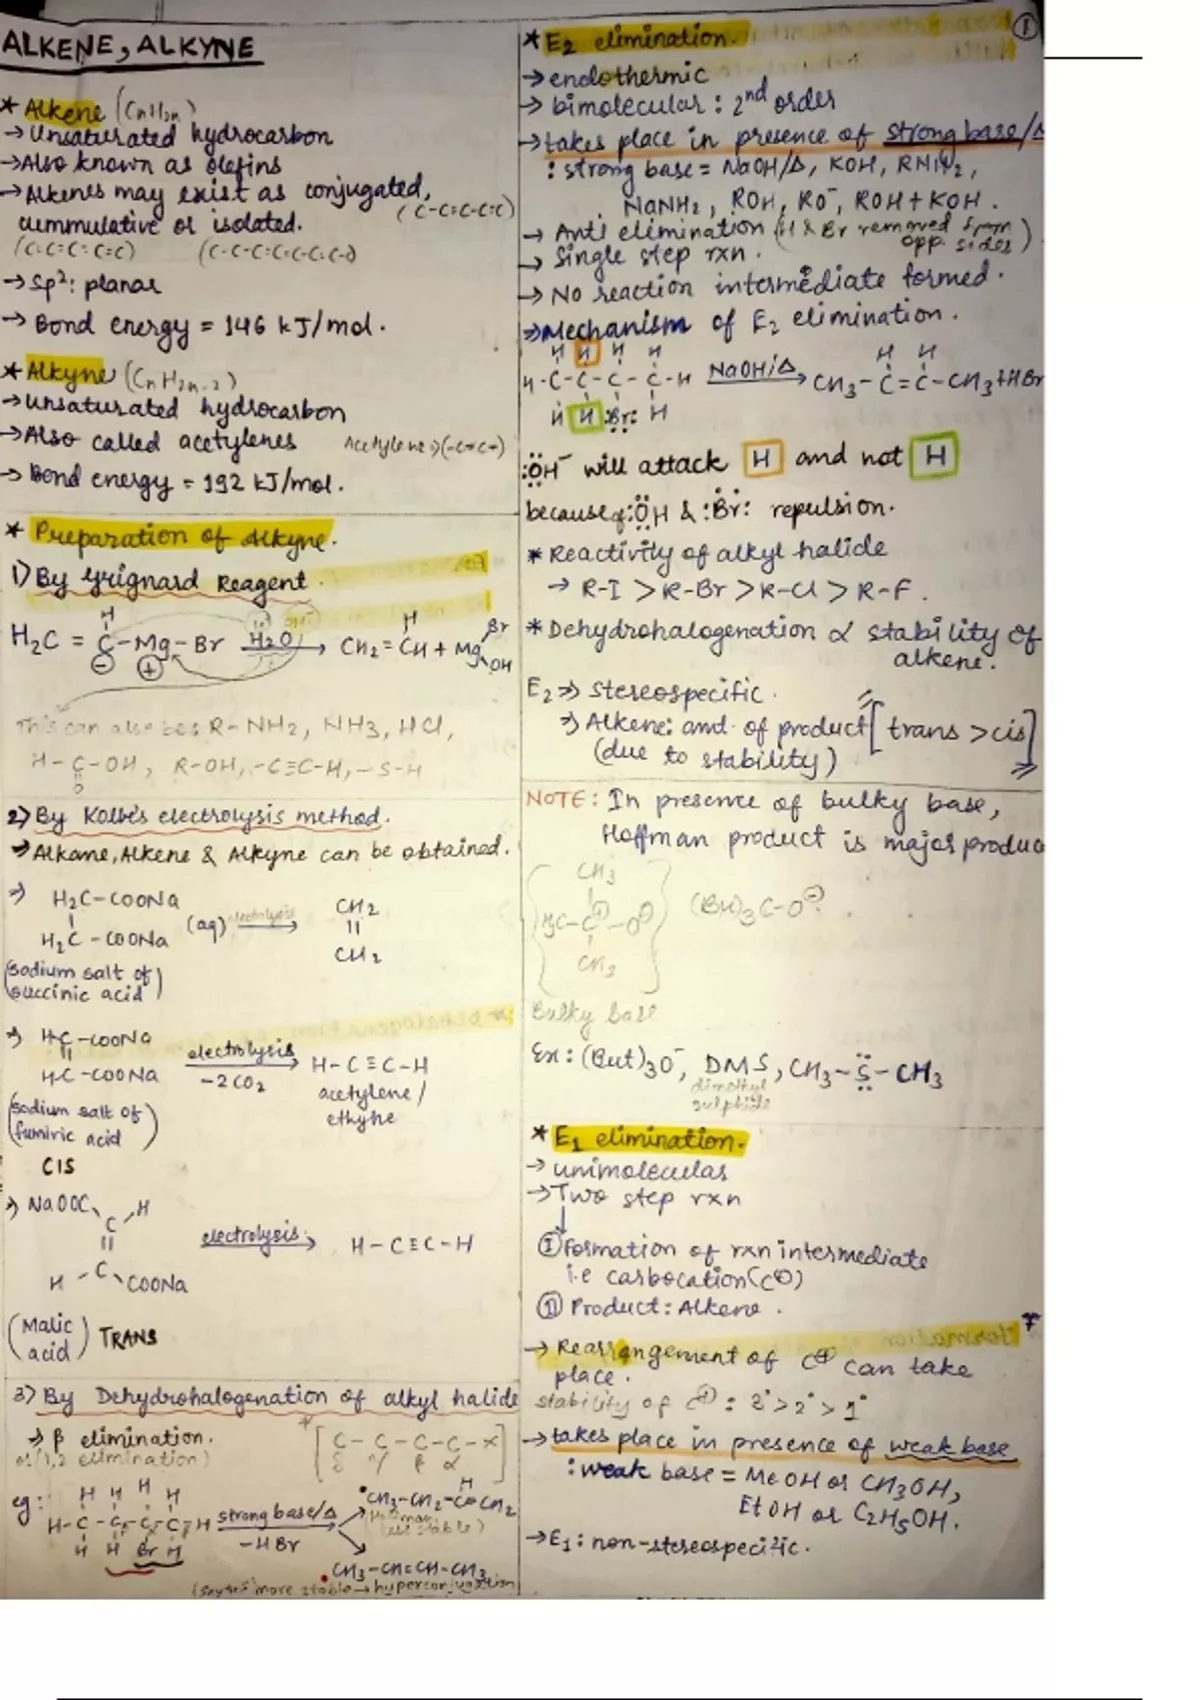 ALKENE, ALKYNE
* Alkene (CnH2n)
→ Unsaturated hydrocarbon
→ Also known as olefins
→ Alkenes may exist as conjugated,
(C-C=C-C=C)
cummulative or isolated.
(C-C=C=C=C) (C-C=C-C-C=C-C)
→ Sp²: planar
→ Bond energy = 146 kJ/mol.
* Alkyne (CnH2n-2)
→ unsaturated hydrocarbon
→ Also called acetylenes Acetylene ⇒ (-C≡C-)
→ Bond energy = 192 kJ/mol.
* Preparation of Alkyne.
1) By Grignard Reagent.
H
H2C = C-Mg-Br H2O → CH2=CH + Mg Br OH
⊖ ⊕
This can also be: R-NH2, NH3, HCl,
H-C-OH, R-OH, -C≡C-H, -S-H
O
2) By Kolbe's electrolysis method.
→ Alkane, Alkene & Alkyne can be obtained.
⇒ H2C-COONa
H2C-COONa (aq) electrolysis → CH2 || CH2
(sodium salt of
succinic acid)
⇒ HC-COONa
|| electrolysis → H-C≡C-H
HC-COONa -2CO2 acetylene/
ethyne
(sodium salt of
fumiric acid)
CIS
⇒ NaOOC H
C
|| electrolysis → H-C≡C-H
H-C COONa
(Malic
acid) TRANS
3) By Dehydrohalogenation of alkyl halide
⇒ β elimination.
or (1,2 elimination)
[C-C-C-C-X]
δ γ β α
eg: H H H H
H-C-C-C-C-H strong base/Δ → CH3-CH2-C=CH2
H H Br H -HBr
(less stable)
CH3-CH=CH-CH3
more stable → hyperconjugation
* E2 elimination. 1
→ endothermic
→ bimolecular: 2nd order
→ takes place in presence of strong base/Δ
: strong base = NaOH/Δ, KOH, RNH2,
NaNH2, ROH, RO-, ROH + KOH.
→ Anti elimination (H & Br removed from
opp. sides)
→ Single step rxn.
→ No reaction intermediate formed.
⇒ Mechanism of E2 elimination.
H H H H H H
H-C-C-C-C-H NaOH/Δ → CH3-C=C-CH3 + HBr
H H :Br: H
:ÖH- will attack H and not H
because of :ÖH & :Br: repulsion.
* Reactivity of alkyl halide
→ R-I > R-Br > R-Cl > R-F.
* Dehydrohalogenation α stability of
alkene.
E2 ⇒ Stereospecific.
⇒ Alkene: amt. of product [trans > cis]
(due to stability)
NOTE: In presence of bulky base,
Hoffman product is major produc
CH3
H3C-C-O⊖ (Bu)3C-O⊖.
CH3
Bulky base
Ex: (But)3O-, DMS, CH3-S-CH3
dimethyl
sulphide
* E1 elimination.
→ unimolecular
→ Two step rxn
↓
I Formation of rxn intermediate
i.e carbocation (C⊕)
II Product: Alkene.
→ Rearrangement of C⊕ can take
place.
stability of C⊕: 3° > 2° > 1°
→ takes place in presence of weak base
: weak base = MeOH or CH3OH,
EtOH or C2H5OH.
→ E1: non-stereospecific.